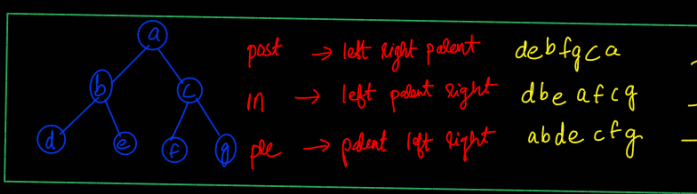 a
post → left right parent debfgca
b c
in → left parent right dbe afcg
d e f g
pre → parent left right abde cfg